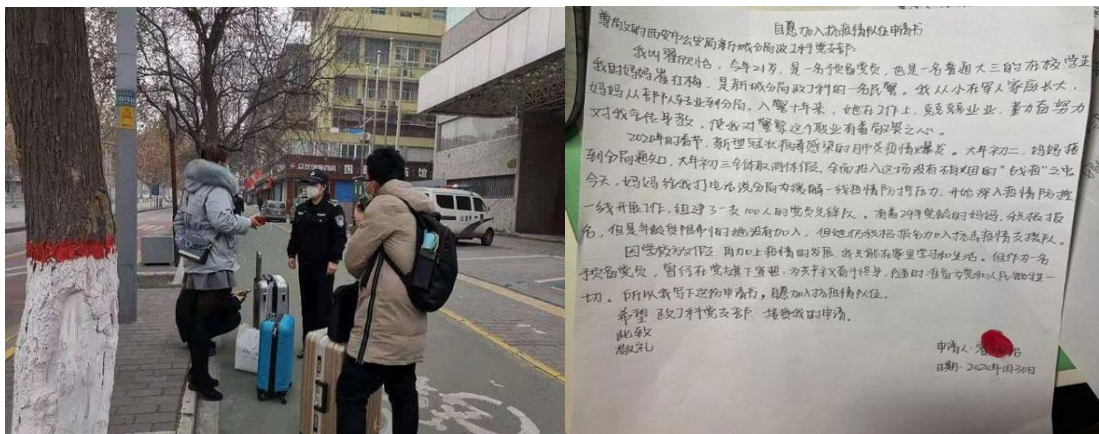 自愿加入抗疫情队伍申请书
尊敬的西安市公安局新城分局政工科党支部:
我叫翟欣怡,今年21岁,是一名预备党员,也是一名普通大三的在校学生
我的妈妈崔拉梅,是新城分局政工科的一名民警。我从小在军人家庭长大,
妈妈从部队转业到分局,入警十年来,她在工作上,兢兢业业,勤奋努力
对我言传身教,使我对警察这个职业有着敬畏之心。
2020年的春节,新型冠状病毒感染的肺炎疫情爆发。大年初二,妈妈接
到分局通知,大年初三全体取消休假,全面投入这场没有硝烟的"战役"之中
今天,妈妈给我打电话说分局为缓解一线疫情防控压力,开始深入疫情防控
一线开展工作,组建了一支100人的党员先锋队。有着29年党龄的妈妈,积极报
名,但是年龄受限制的她没有加入,但她仍积极报名加入抗击疫情支援队。
因学校放假,再加上疫情的发展,我只能在家里学习和生活。但作为一名
预备党员,曾经在党旗下宣誓,为共产主义奋斗终身,随时准备为党和人民牺牲一
切。所以我写下这份申请书,自愿加入抗疫情队伍。
希望政工科党支部接受我的申请。
此致
敬礼
申请人:翟欣怡
日期:2020年1月30日